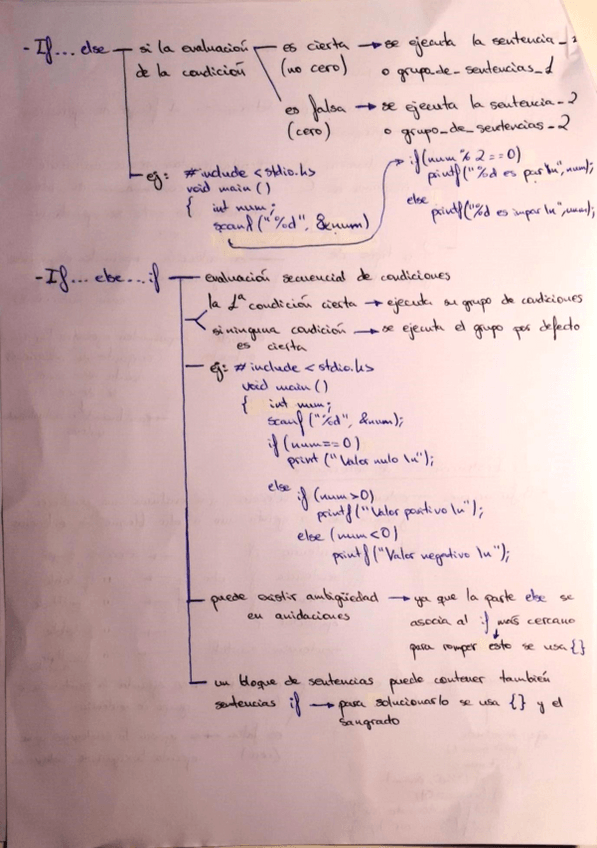 - If... else
si la evaluación
de la condición
es cierta → se ejecuta la sentencia_1
(no cero) o grupo_de_sentencias_1
es falsa → se ejecuta la sentencia_2
(cero) o grupo_de_sentencias_2
ej: #include <stdio.h>
void main ()
{ int num;
scanf ("%d", &num)
if (num % 2 == 0)
printf ("%d es par \n", num);
else
printf ("%d es impar \n", num);
- If... else... if
evaluación secuencial de condiciones
la 1ª condición cierta → ejecuta su grupo de condiciones
si ninguna condición → se ejecuta el grupo por defecto
es cierta
ej: #include <stdio.h>
void main ()
{ int num;
scanf ("%d", &num);
if (num==0)
print ("Valor nulo \n");
else
if (num>0)
printf ("Valor positivo \n");
else (num<0)
printf ("Valor negativo \n");
puede existir ambigüedad → ya que la parte else se
en anidaciones asocia al if más cercano
para romper esto se usa {}
un bloque de sentencias puede contener también
sentencias if → para solucionarlo se usa {} y el
sangrado